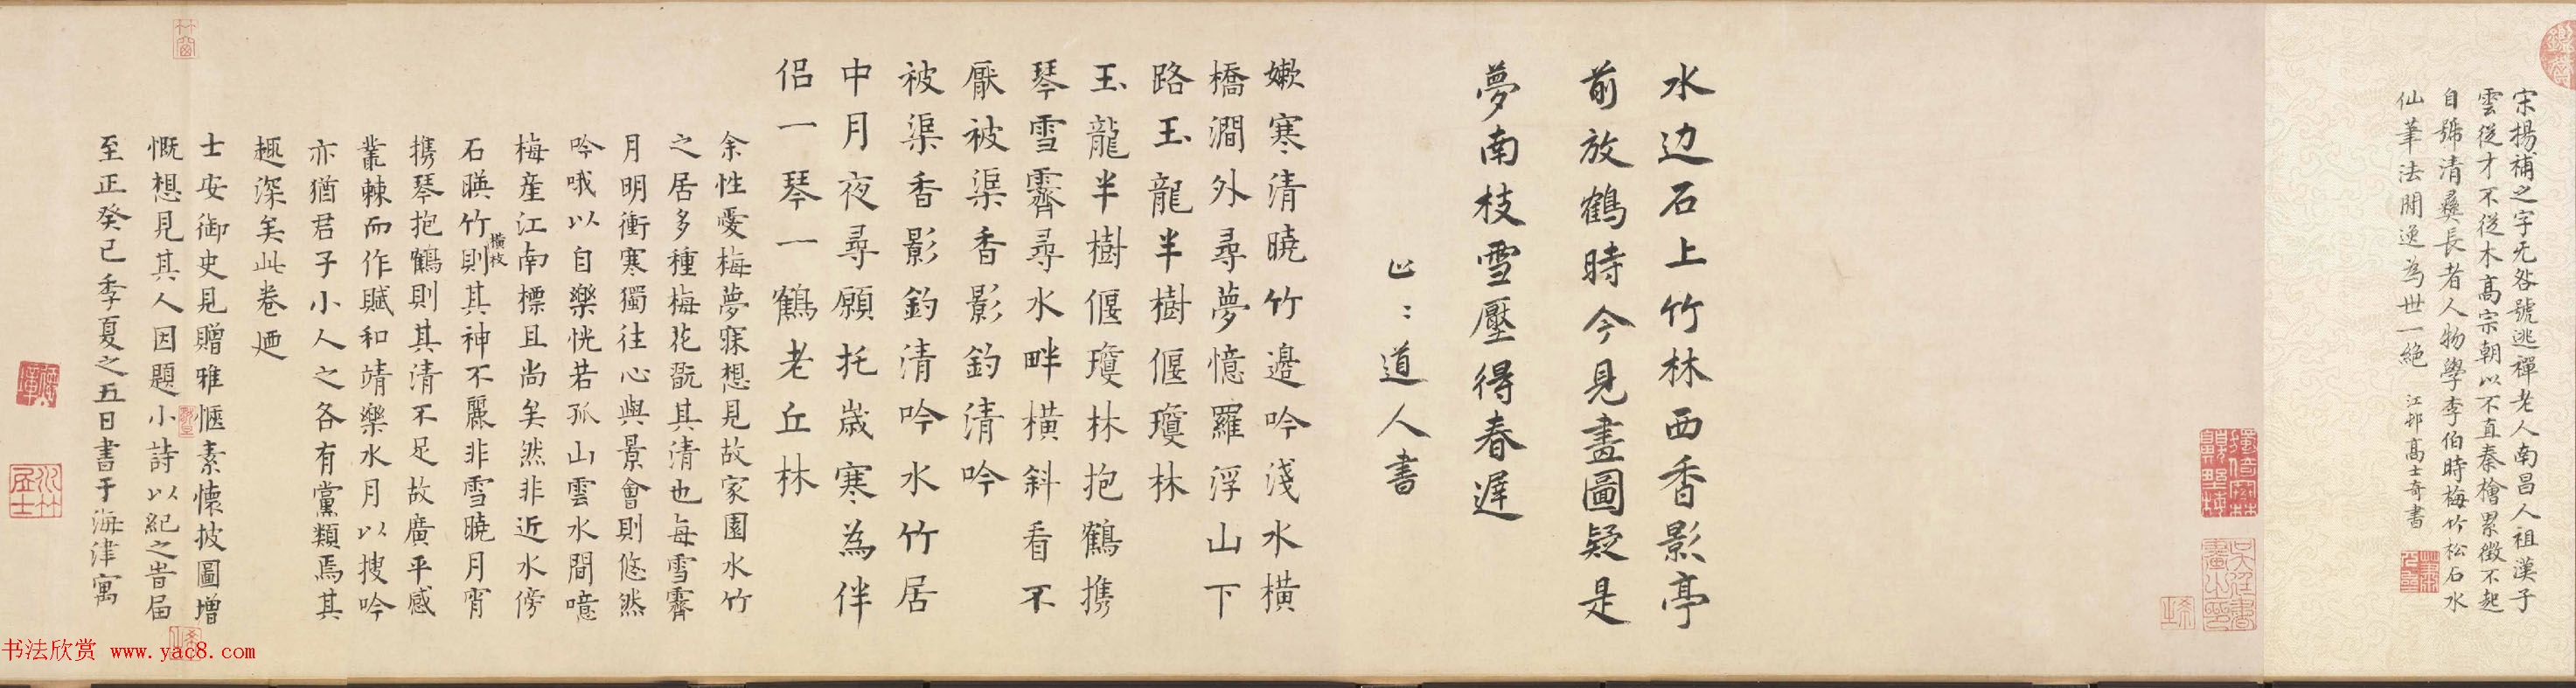 宋揚補之字无咎號逃禪老人南昌人祖漢子
雲從才不從木高宗朝以不直秦檜累徵不起
自號清夷長者人物學李伯時梅竹松石水
仙筆法閒逸為世一絶
江邨高士奇書
水边石上竹林西香影亭
前放鶴時今見畫圖疑是
夢南枝雪壓得春遲
道人書
嫩寒清曉竹邊吟淺水橫
橋澗外尋夢憶羅浮山下
路玉龍半樹偃瓊林
玉龍半樹偃瓊林抱鶴携
琴雪霽尋水畔橫斜看不
厭被渠香影釣清吟
被渠香影釣清吟水竹居
中月夜尋願托歲寒為伴
侣一琴一鶴老丘林
余性愛梅夢寐想見故家園水竹
之居多種梅花翫其清也每雪霽
月明衝寒獨往心與景會則悠然
吟哦以自樂恍若孤山雲水間噫
梅産江南標且尚矣然非近水傍
石暎竹橫枝則其神不麗非雪曉月宵
携琴抱鶴則其清不足故廣平感
叢棘而作賦和靖樂水月以搜吟
亦猶君子小人之各有黨類焉其
趣深矣此卷迺
士安御史見贈雅愜素懷披圖增
慨想見其人因題小詩以紀之旹屆
至正癸巳季夏之五日書于海津寓
书法欣赏 www.yac8.com